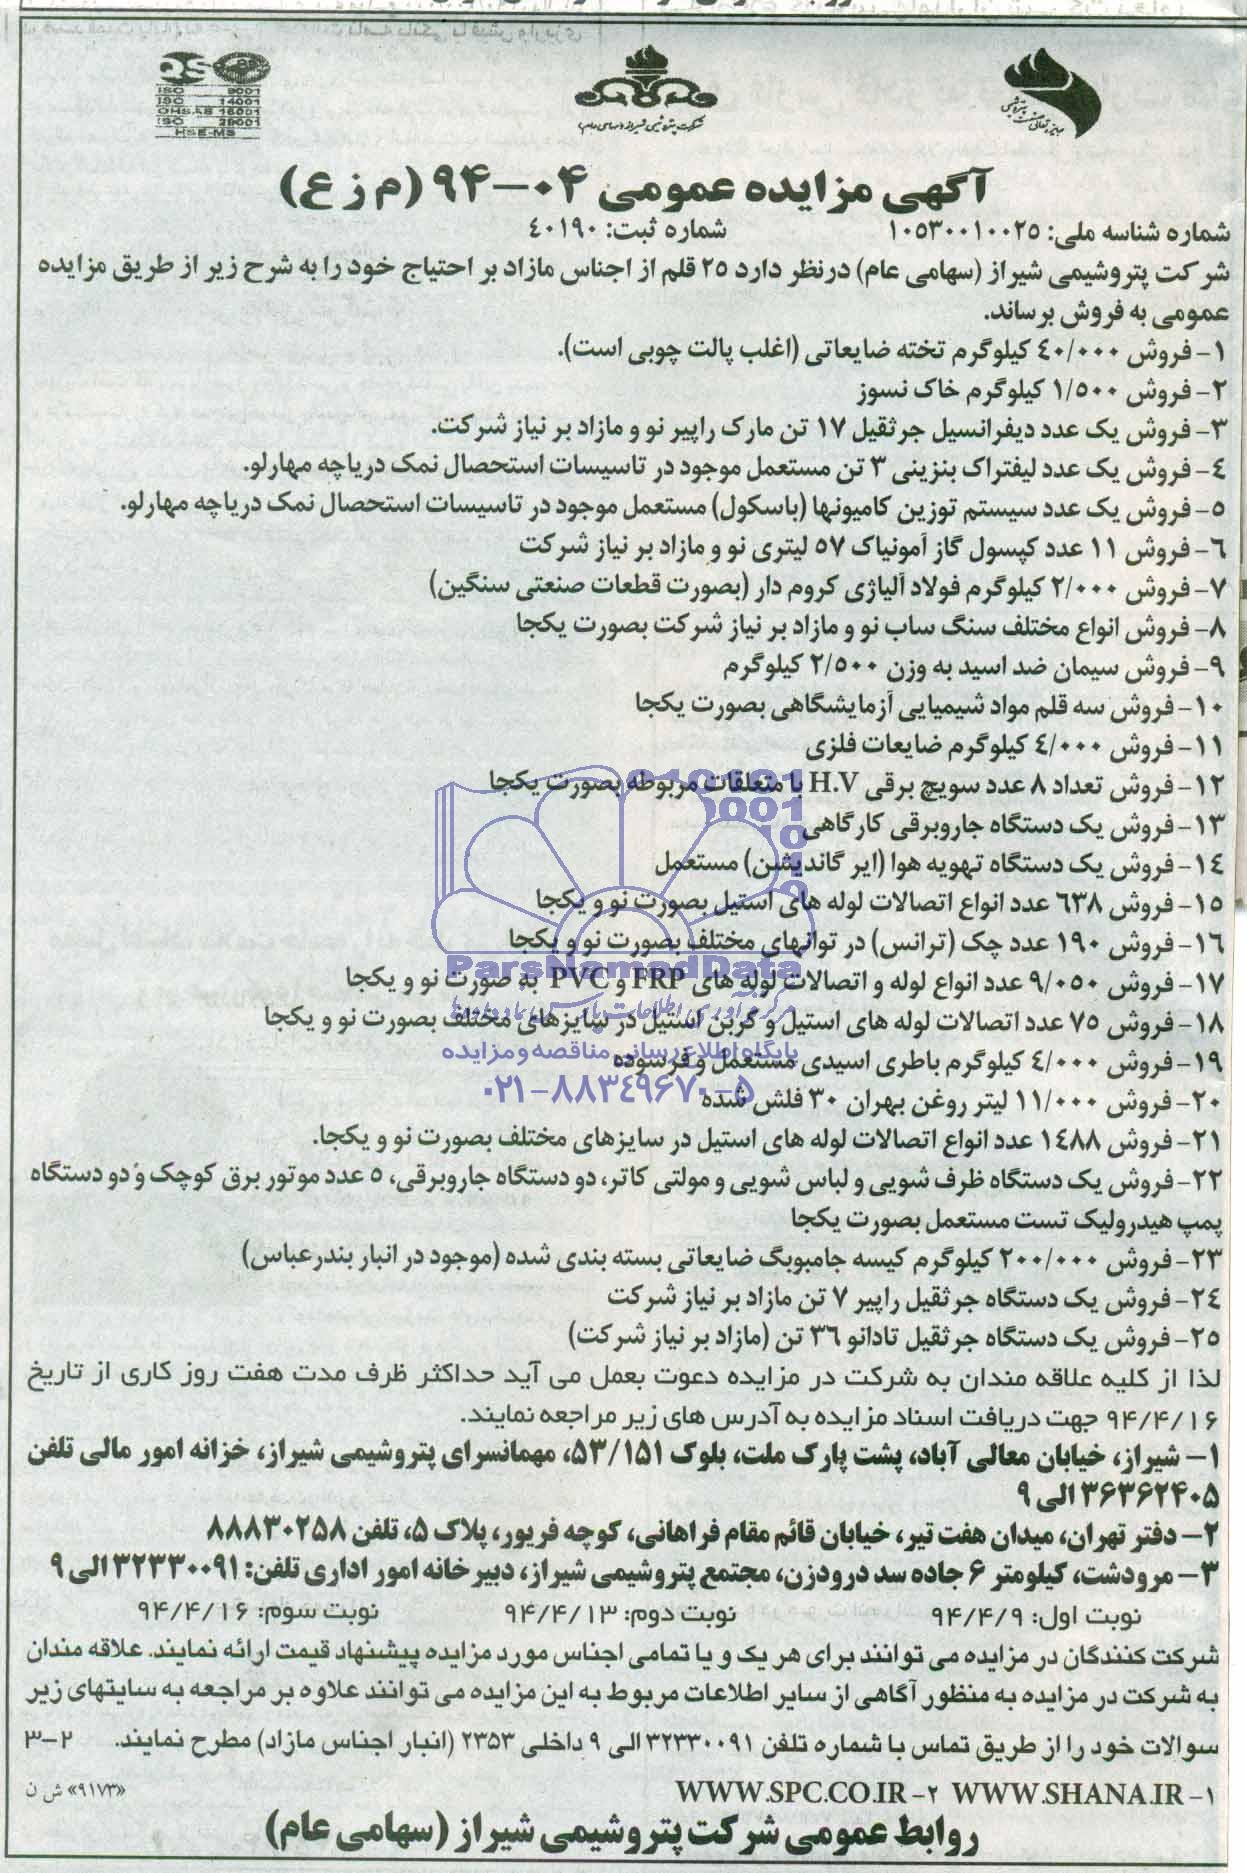 QS
ISO 9001
ISO 14001
OHSAS 18001
ISO 29001
HSE-MS
شرکت پتروشیمی شیراز (سهامی عام)
آگهی مزایده عمومی ۰۴-۹۴ (م ز ع)
شماره شناسه ملی: ۱۰۵۳۰۰۱۰۰۲۵ شماره ثبت: ۴۰۱۹۰
شرکت پتروشیمی شیراز (سهامی عام) درنظر دارد ۲۵ قلم از اجناس مازاد بر احتیاج خود را به شرح زیر از طریق مزایده
عمومی به فروش برساند.
۱- فروش ۴۰/۰۰۰ کیلوگرم تخته ضایعاتی (اغلب پالت چوبی است).
۲- فروش ۱/۵۰۰ کیلوگرم خاک نسوز
۳- فروش یک عدد دیفرانسیل جرثقیل ۱۷ تن مارک راپیر نو و مازاد بر نیاز شرکت.
۴- فروش یک عدد لیفتراک بنزینی ۳ تن مستعمل موجود در تاسیسات استحصال نمک دریاچه مهارلو.
۵- فروش یک عدد سیستم توزین کامیونها (باسکول) مستعمل موجود در تاسیسات استحصال نمک دریاچه مهارلو.
۶- فروش ۱۱ عدد کپسول گاز آمونیاک ۵۷ لیتری نو و مازاد بر نیاز شرکت
۷- فروش ۲/۰۰۰ کیلوگرم فولاد آلیاژی کروم دار (بصورت قطعات صنعتی سنگین)
۸- فروش انواع مختلف سنگ ساب نو و مازاد بر نیاز شرکت بصورت یکجا
۹- فروش سیمان ضد اسید به وزن ۲/۵۰۰ کیلوگرم
۱۰- فروش سه قلم مواد شیمیایی آزمایشگاهی بصورت یکجا
۱۱- فروش ۴/۰۰۰ کیلوگرم ضایعات فلزی
۱۲- فروش تعداد ۸ عدد سویچ برقی H.V با متعلقات مربوطه بصورت یکجا
۱۳- فروش یک دستگاه جاروبرقی کارگاهی
۱۴- فروش یک دستگاه تهویه هوا (ایر گاندیشن) مستعمل
۱۵- فروش ۶۳۸ عدد انواع اتصالات لوله های استیل بصورت نو و یکجا
۱۶- فروش ۱۹۰ عدد چک (ترانس) در توانهای مختلف بصورت نو و یکجا
ParsNamadData
۱۷- فروش ۹/۰۵۰ عدد انواع لوله و اتصالات لوله های FRP و PVC به صورت نو و یکجا
۱۸- فروش ۷۵ عدد اتصالات لوله های استیل و کربن استیل در سایزهای مختلف بصورت نو و یکجا
پایگاه اطلاع رسانی مناقصه و مزایده
۱۹- فروش ۴/۰۰۰ کیلوگرم باطری اسیدی مستعمل و فرسوده
۰۲۱-۸۸۳۴۹۶۷۰-۵
۲۰- فروش ۱۱/۰۰۰ لیتر روغن بهران ۳۰ فلش شده
۲۱- فروش ۱۴۸۸ عدد انواع اتصالات لوله های استیل در سایزهای مختلف بصورت نو و یکجا.
۲۲- فروش یک دستگاه ظرف شویی و لباس شویی و مولتی کاتر، دو دستگاه جاروبرقی، ۵ عدد موتور برق کوچک و دو دستگاه
پمپ هیدرولیک تست مستعمل بصورت یکجا
۲۳- فروش ۲۰۰/۰۰۰ کیلوگرم کیسه جامبوبگ ضایعاتی بسته بندی شده (موجود در انبار بندرعباس)
۲۴- فروش یک دستگاه جرثقیل راپیر ۷ تن مازاد بر نیاز شرکت
۲۵- فروش یک دستگاه جرثقیل تادانو ۳۶ تن (مازاد بر نیاز شرکت)
لذا از کلیه علاقه مندان به شرکت در مزایده دعوت بعمل می آید حداکثر ظرف مدت هفت روز کاری از تاریخ
۹۴/۴/۱۶ جهت دریافت اسناد مزایده به آدرس های زیر مراجعه نمایند.
۱- شیراز، خیابان معالی آباد، پشت پارک ملت، بلوک ۵۳/۱۵۱، مهمانسرای پتروشیمی شیراز، خزانه امور مالی تلفن
۳۶۳۶۲۴۰۵ الی ۹
۲- دفتر تهران، میدان هفت تیر، خیابان قائم مقام فراهانی، کوچه فریور، پلاک ۵، تلفن ۸۸۸۳۰۲۵۸
۳- مرودشت، کیلومتر ۶ جاده سد درودزن، مجتمع پتروشیمی شیراز، دبیرخانه امور اداری تلفن: ۳۲۳۳۰۰۹۱ الی ۹
نوبت اول: ۹۴/۴/۹ نوبت دوم: ۹۴/۴/۱۳ نوبت سوم: ۹۴/۴/۱۶
شرکت کنندگان در مزایده می توانند برای هر یک و یا تمامی اجناس مورد مزایده پیشنهاد قیمت ارائه نمایند. علاقه مندان
به شرکت در مزایده به منظور آگاهی از سایر اطلاعات مربوط به این مزایده می توانند علاوه بر مراجعه به سایتهای زیر
سوالات خود را از طریق تماس با شماره تلفن ۳۲۳۳۰۰۹۱ الی ۹ داخلی ۲۳۵۳ (انبار اجناس مازاد) مطرح نمایند. ۲-۳
۱- WWW.SHANA.IR ۲- WWW.SPC.CO.IR «۹۱۷۳» ش ن
روابط عمومی شرکت پتروشیمی شیراز (سهامی عام)